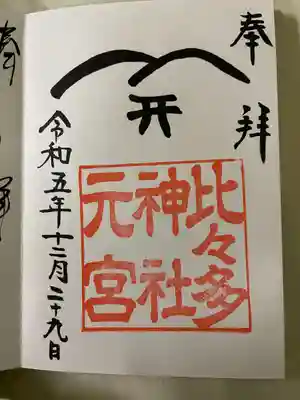 奉拝
比々多
神社
元宮
令和五年十二月二十九日